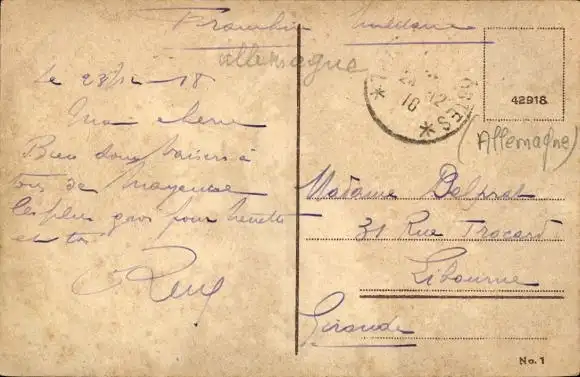 Franchise militaire
Allemagne
Le 23/12 - 18
Ma chérie
Bien doux baisers à
toi de Mayence
les plus gros pour
et toi
René
* 24 12 18 * POSTES
42918
(Allemagne)
Madame Delprat
31 Rue Trocard
Libourne
Gironde
No. 1